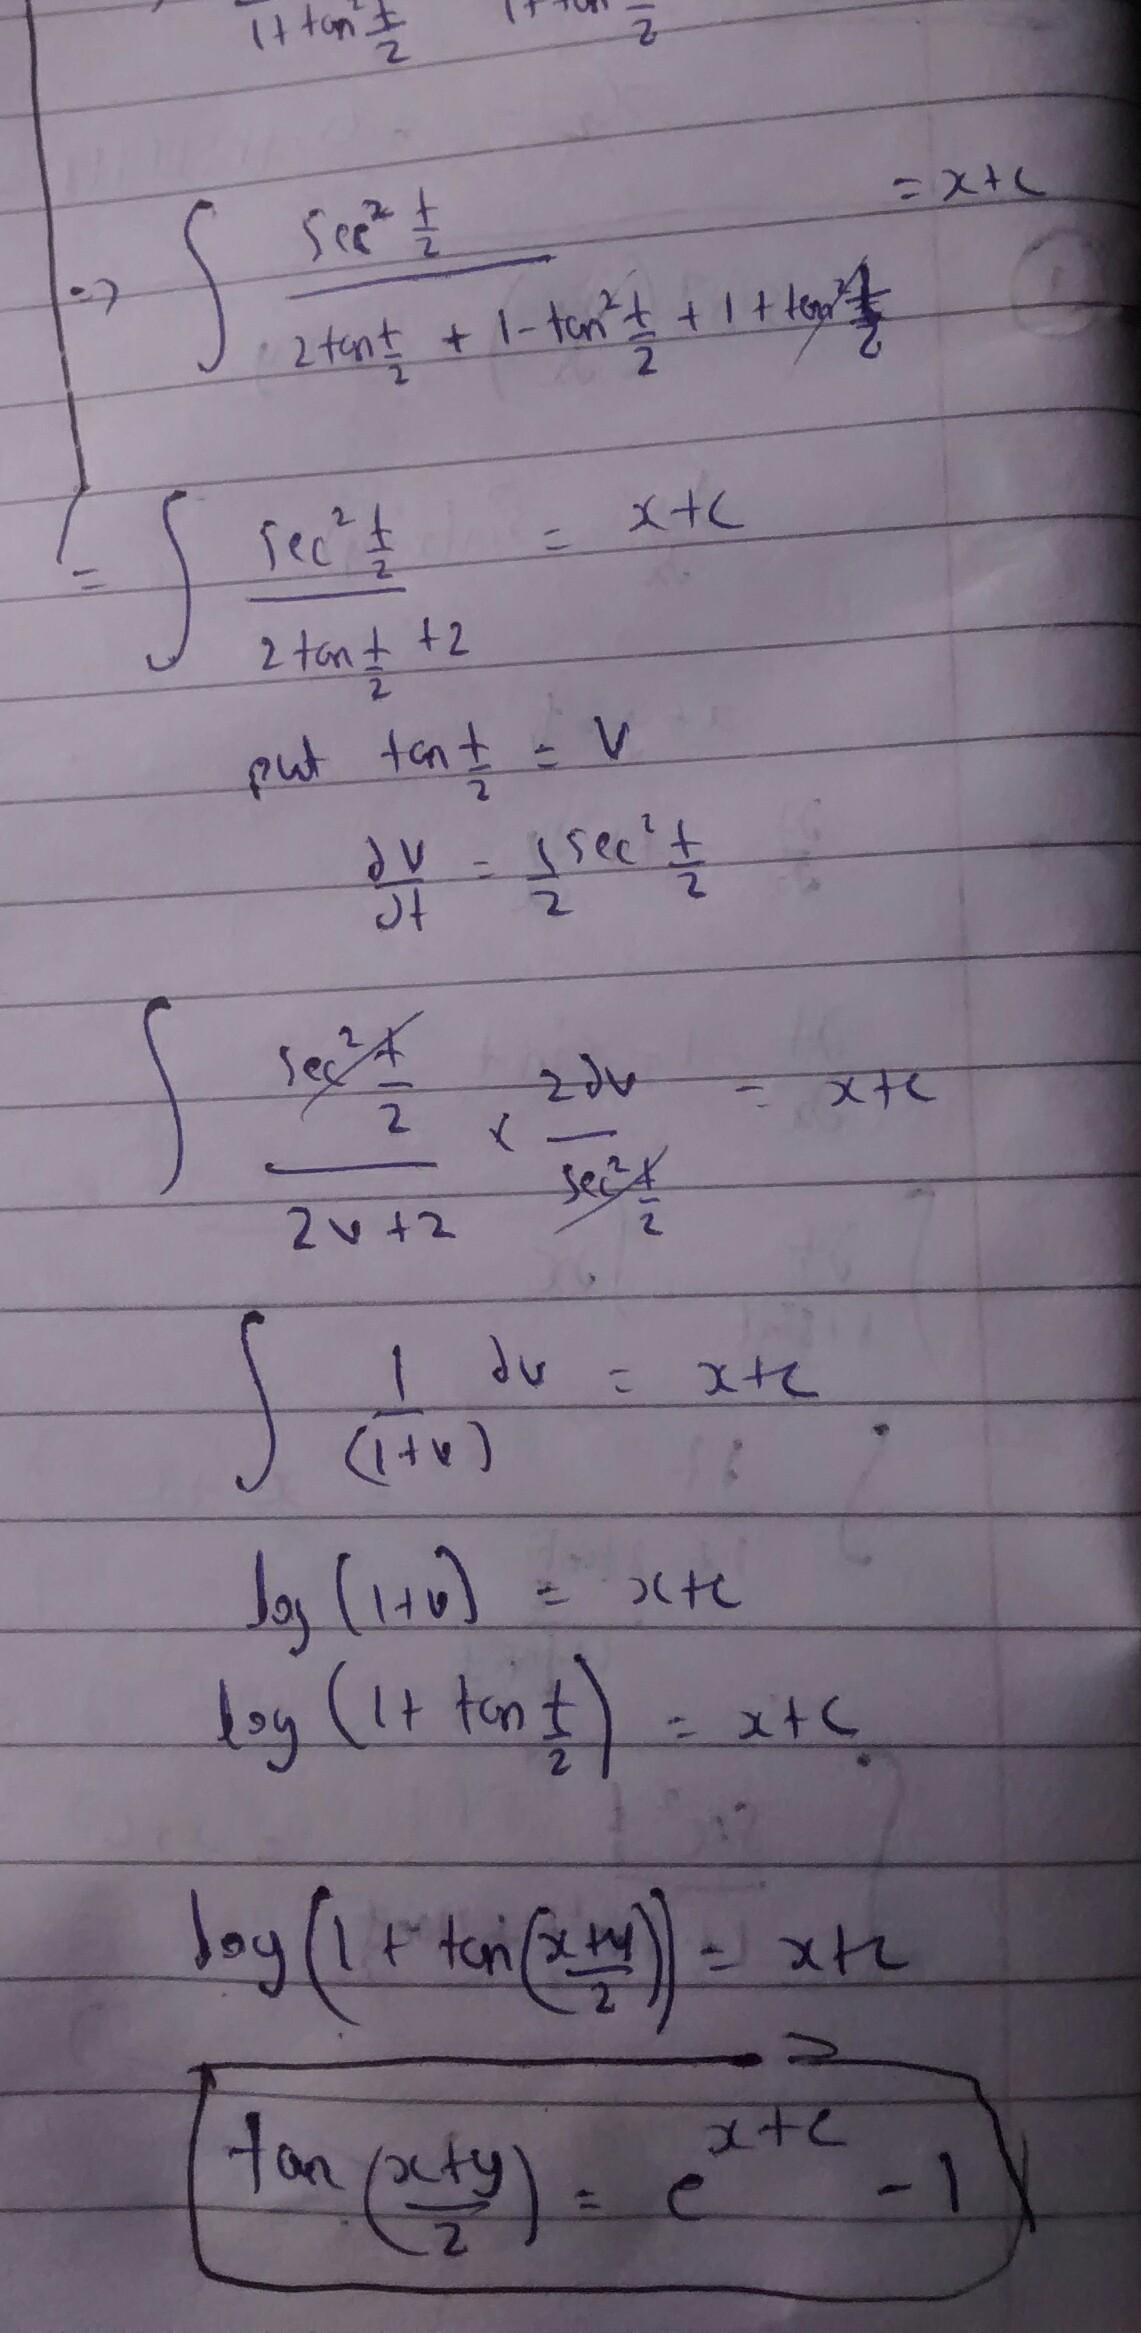 1+tan² t/2   1+tan t/2
=> ∫ sec² t/2 / (2tan t/2 + 1-tan² t/2 + 1+tan² t/2) = x+c
= ∫ sec² t/2 / (2tan t/2 +2) = x+c
put tan t/2 = V
dv/dt = 1/2 sec² t/2
∫ sec² t/2 / (2v+2) × 2dv / sec² t/2 = x+c
∫ 1/(1+v) dv = x+c
log (1+v) = x+c
log (1+ tan t/2) = x+c
log (1+ tan(x+y/2)) = x+c
tan (x+y/2) = e^(x+c) -1